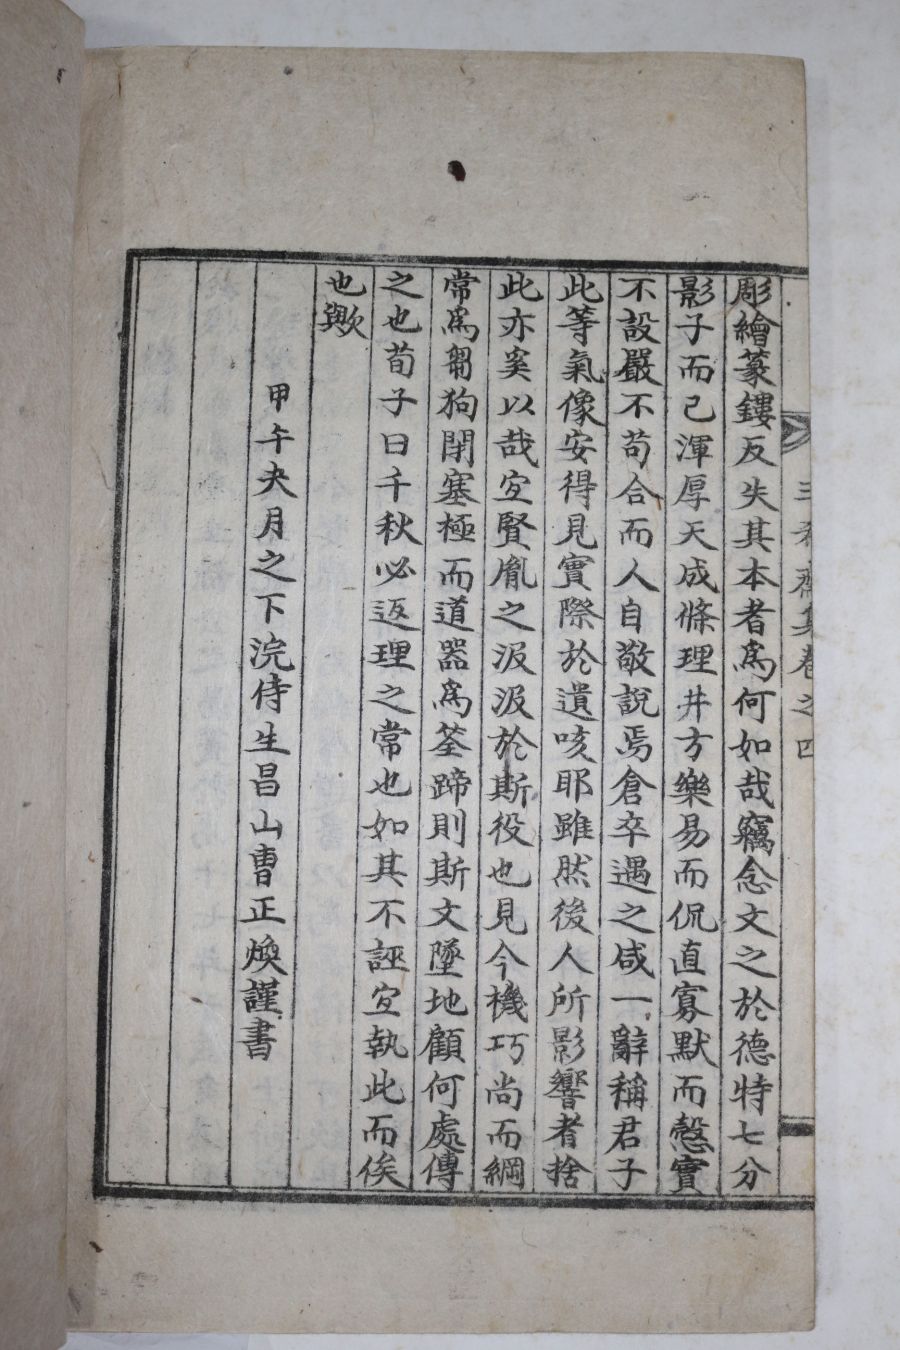 齋集卷之四
彫繪篆鏤反失其本者爲何如哉竊念文之於德特七分
影子而已渾厚天成條理井方樂易而侃直寡默而慤實
不設嚴不苟合而人自敬說焉倉卒遇之咸一辭稱君子
此等氣像安得見實際於遺咳耶雖然後人所影響者捨
此亦奚以哉宜賢胤之汲汲於斯役也見今機巧尚而綱
常爲芻狗閉塞極而道器爲筌蹄則斯文墜地顧何處傳
之也荀子曰千秋必返理之常也如其不誣宜執此而俟
也歟
甲午夬月之下浣侍生昌山曺正煥謹書